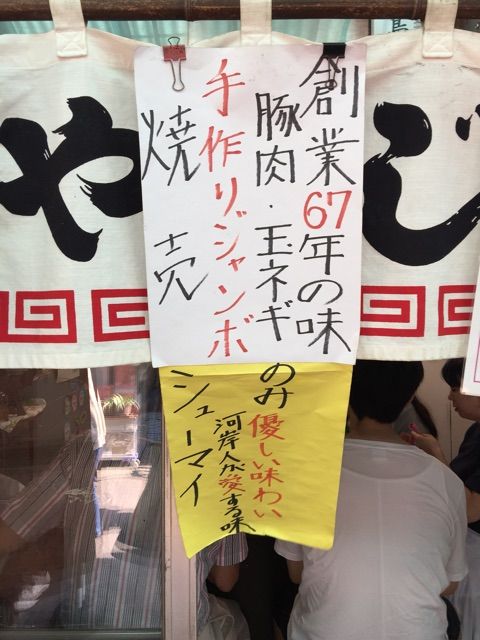 創業67年の味
豚肉・玉ネギのみ
手作りジャンボ
焼売
シューマイ
優しい味わい
河岸人が愛する味
やじ